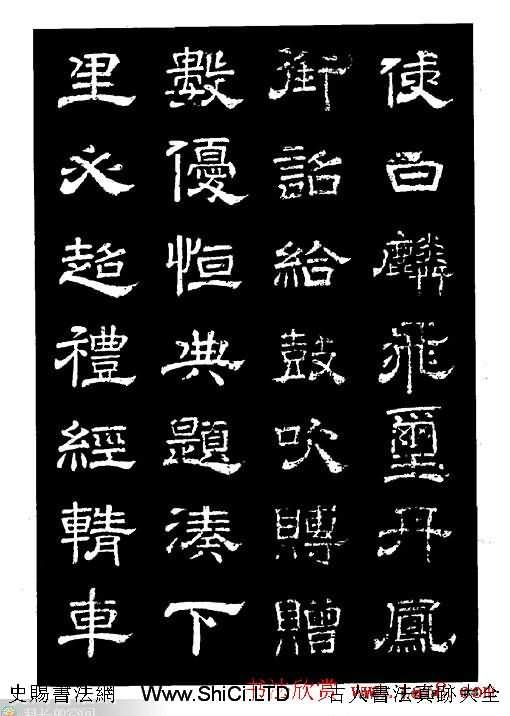 使白麟飛璽丹鳳
御詔給鼓吹賻贈
數優恒典題湊下
里必超禮經輤車
史賜書法網 Www.ShiCi.LTD
书法欣赏 古人書法真跡大全